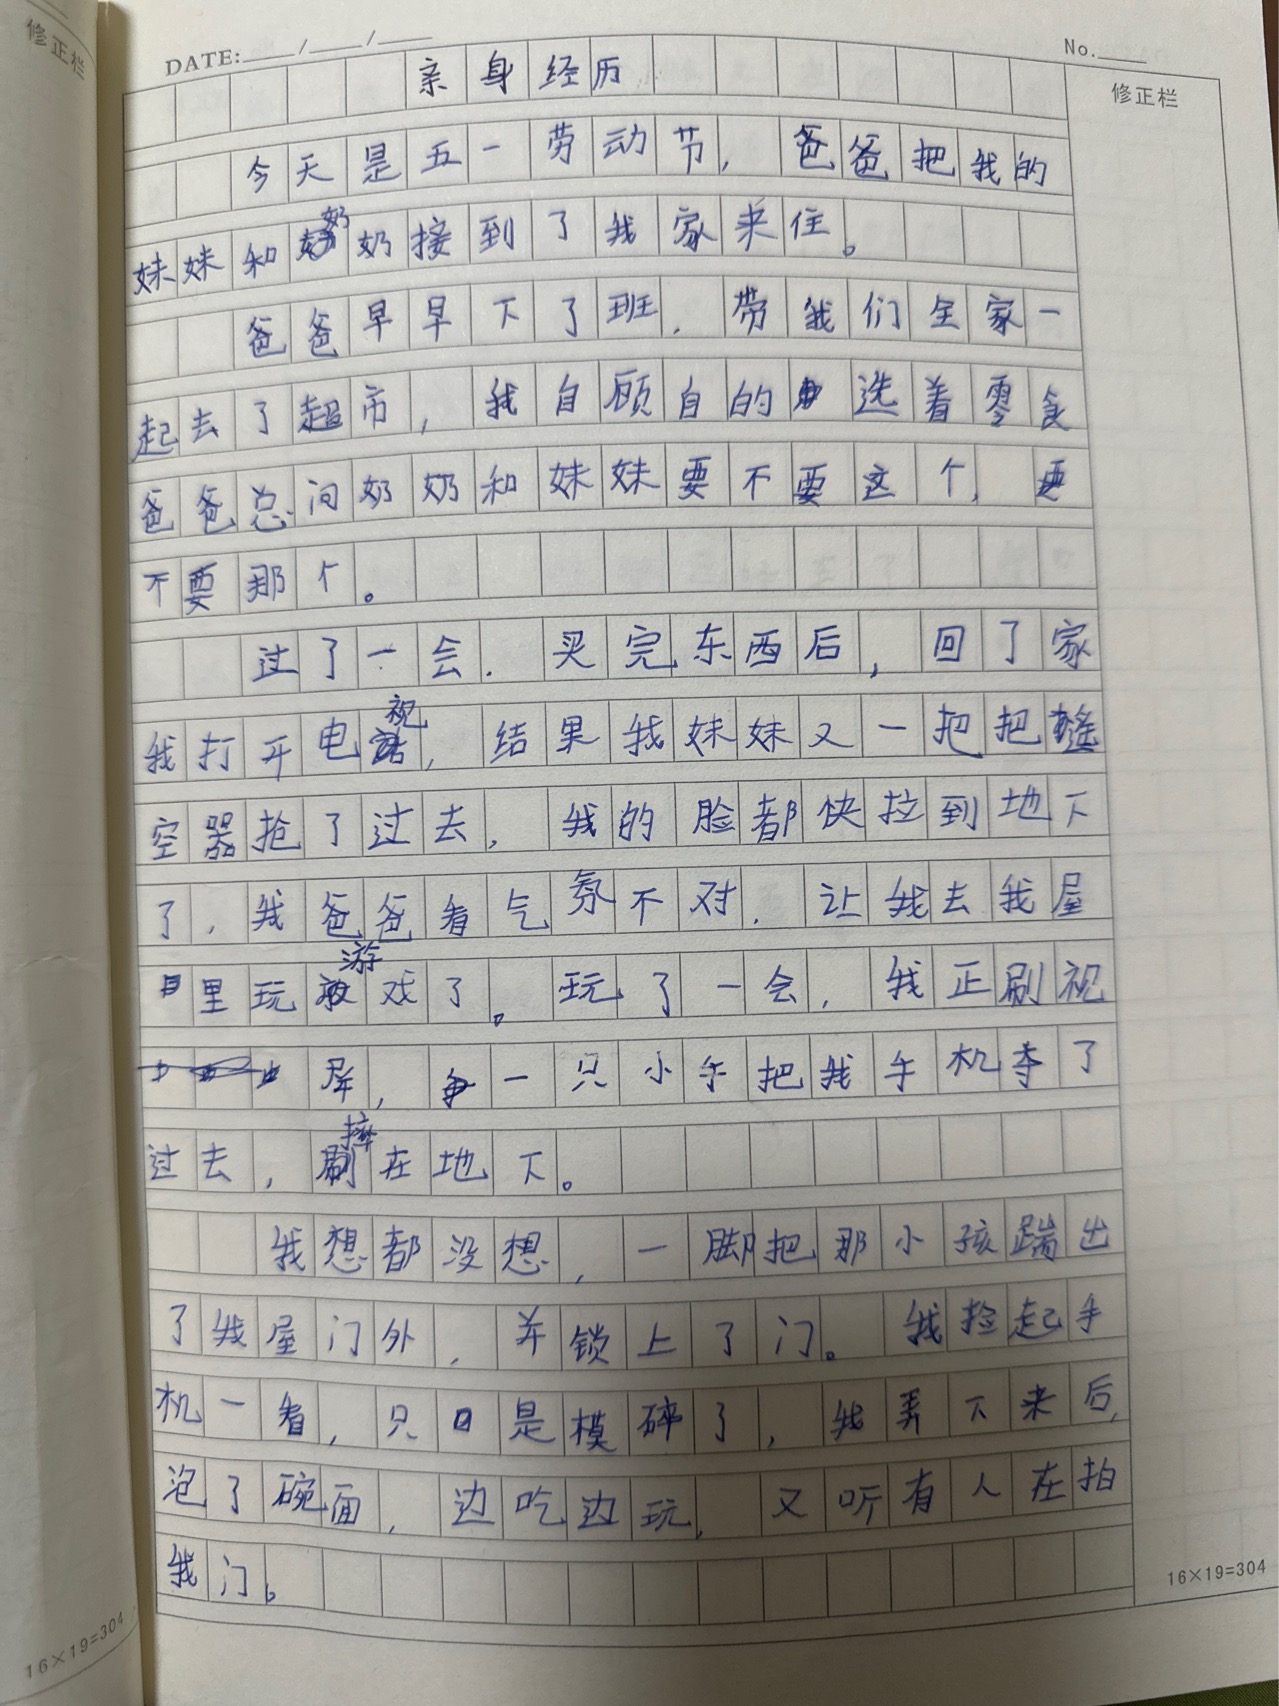 修正栏
DATE: / /
No.
修正栏
亲身经历
今天是五一劳动节，爸爸把我的
妹妹和奶奶接到了我家来住。
爸爸早早下了班，带我们全家一
起去了超市，我自顾自的选着零食
爸爸总问奶奶和妹妹要不要这个，要
不要那个。
过了一会，买完东西后，回了家
我打开电视，结果我妹妹又一把把
空器抢了过去，我的脸都快拉到地下
了，我爸爸看气氛不对，让我去我屋
里玩游戏了。玩了一会，我正刷视
，一只小手把我手机夺了
过去，摔在地下。
我想都没想，一脚把那小孩踹出
了我屋门外，并锁上了门。我捡起手
机一看，只是模碎了，我弄下来后，
泡了碗面，边吃边玩，又听有人在拍
我门。
16×19=304
16×19=304